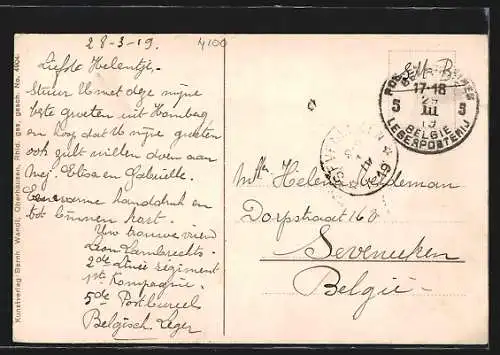 28-3-19.
4100
Liefste Helentje.
Stuur U met deze mijne
beste groeten uit Homberg
en hoop dat U mijne groeten
ook zult willen doen aan
Mej. Elisa en Gabrielle.
Eene warme handdruk en
tot binnen kort.
Uw trouwe vriend
Leon Lambrechts.
2de Linie regiment
1ste Kompagnie.
5de Postbureel
Belgisch Leger
Kunstverlag Bernh. Wandt, Oberhausen, Rhld. ges. gesch. No. 4404
S. M. B.
17-18
5 III 5
19
BELGIE
LEGERPOSTERIJ
1919
Mej. Helena
Dorpstraat 160
Seveneeken
België